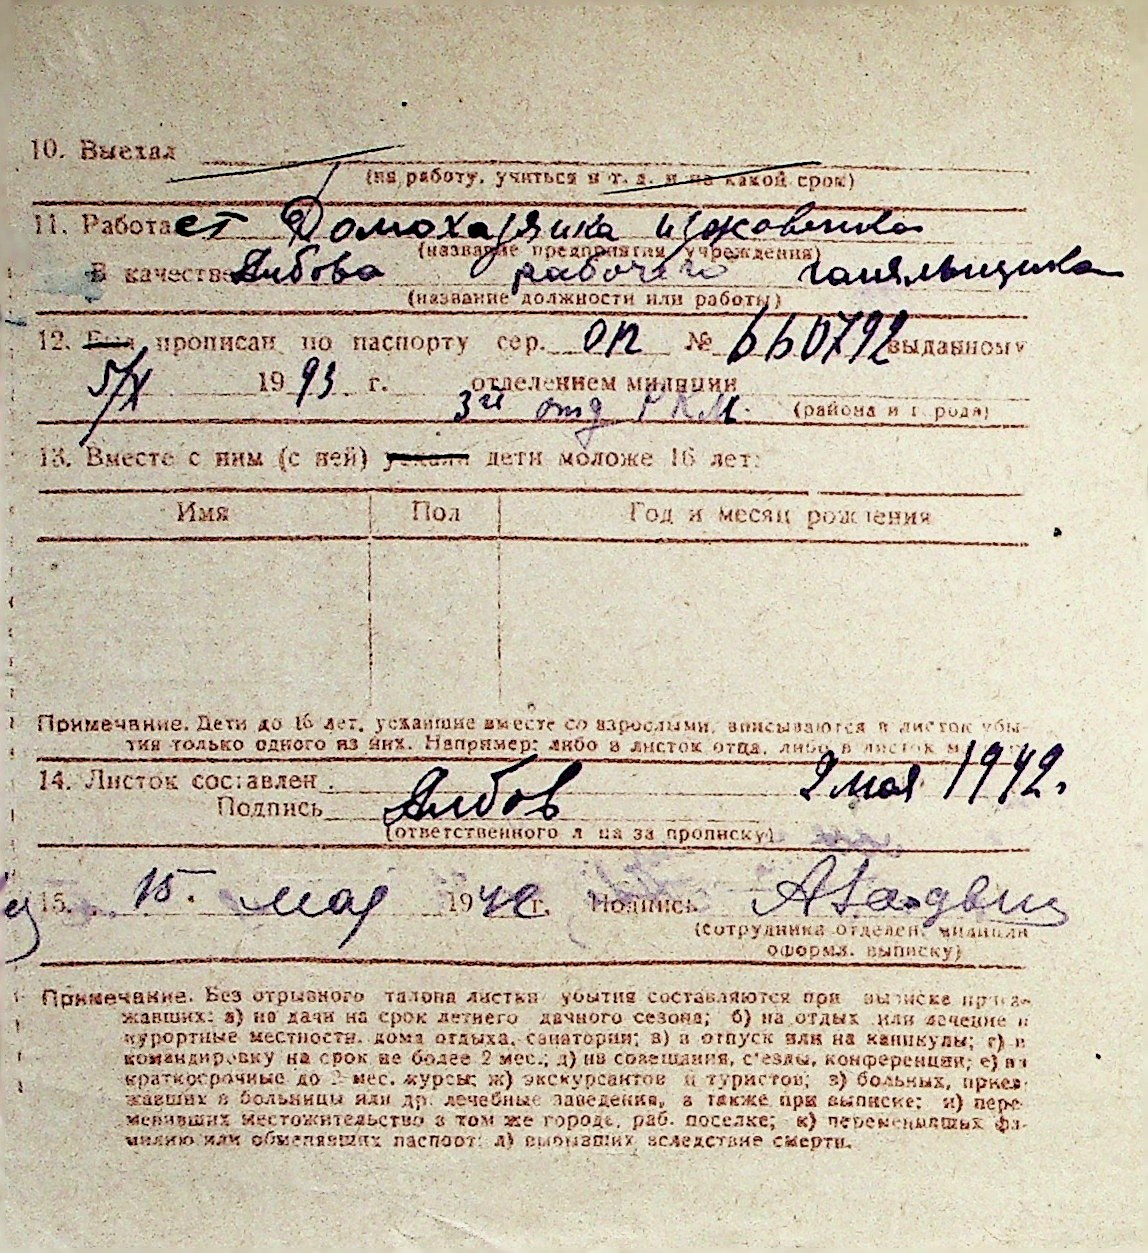 10. Выехал
(на работу, учиться и т. д. и на какой срок)
11. Работает Домохазяика иждовенка
(название предприятия учреждения)
В качестве рабочего
(название должности или работы)
12. Был прописан по паспорту сер. ОП № 660792 выданному
5/X 1993 г. отделением милиции
3й отд РКМ. (района и города)
13. Вместе с ним (с ней) уехали дети моложе 16 лет:
Имя Пол Год и месяц рождения
Примечание. Дети до 16 лет, уехавшие вместе со взрослыми, вписываются в листок убы-
тия только одного из них. Например: либо в листок отца, либо в листок
14. Листок составлен 2 мая 1942.
Подпись
(ответственного лица за прописку)
15. 15. мая 1942 г. Подпись
(сотрудника отделен. милиции
оформл. выписку)
Примечание. Без отрывного талона листки убытия составляются при выписке приез-
жавших: а) на дачи на срок летнего дачного сезона; б) на отдых или лечение в
курортные местности, дома отдыха, санатории; в) в отпуск или на каникулы; г) в
командировку на срок не более 2 мес.; д) на совещания, с'езды, конференции; е) на
краткосрочные до 2 мес. курсы; ж) экскурсантов и туристов; з) больных, приез-
жавших в больницы или др. лечебные заведения, а также при выписке; и) пере-
менивших местожительство в том же городе, раб. поселке; к) переменивших фа-
милию или обменявших паспорт; л) выбывших вследствие смерти.